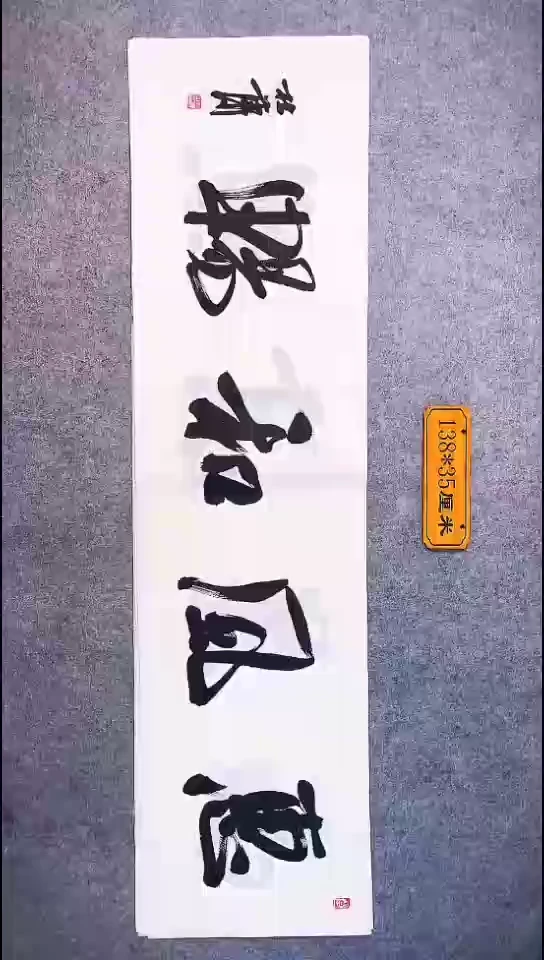 惠風和暢
138*35厘米